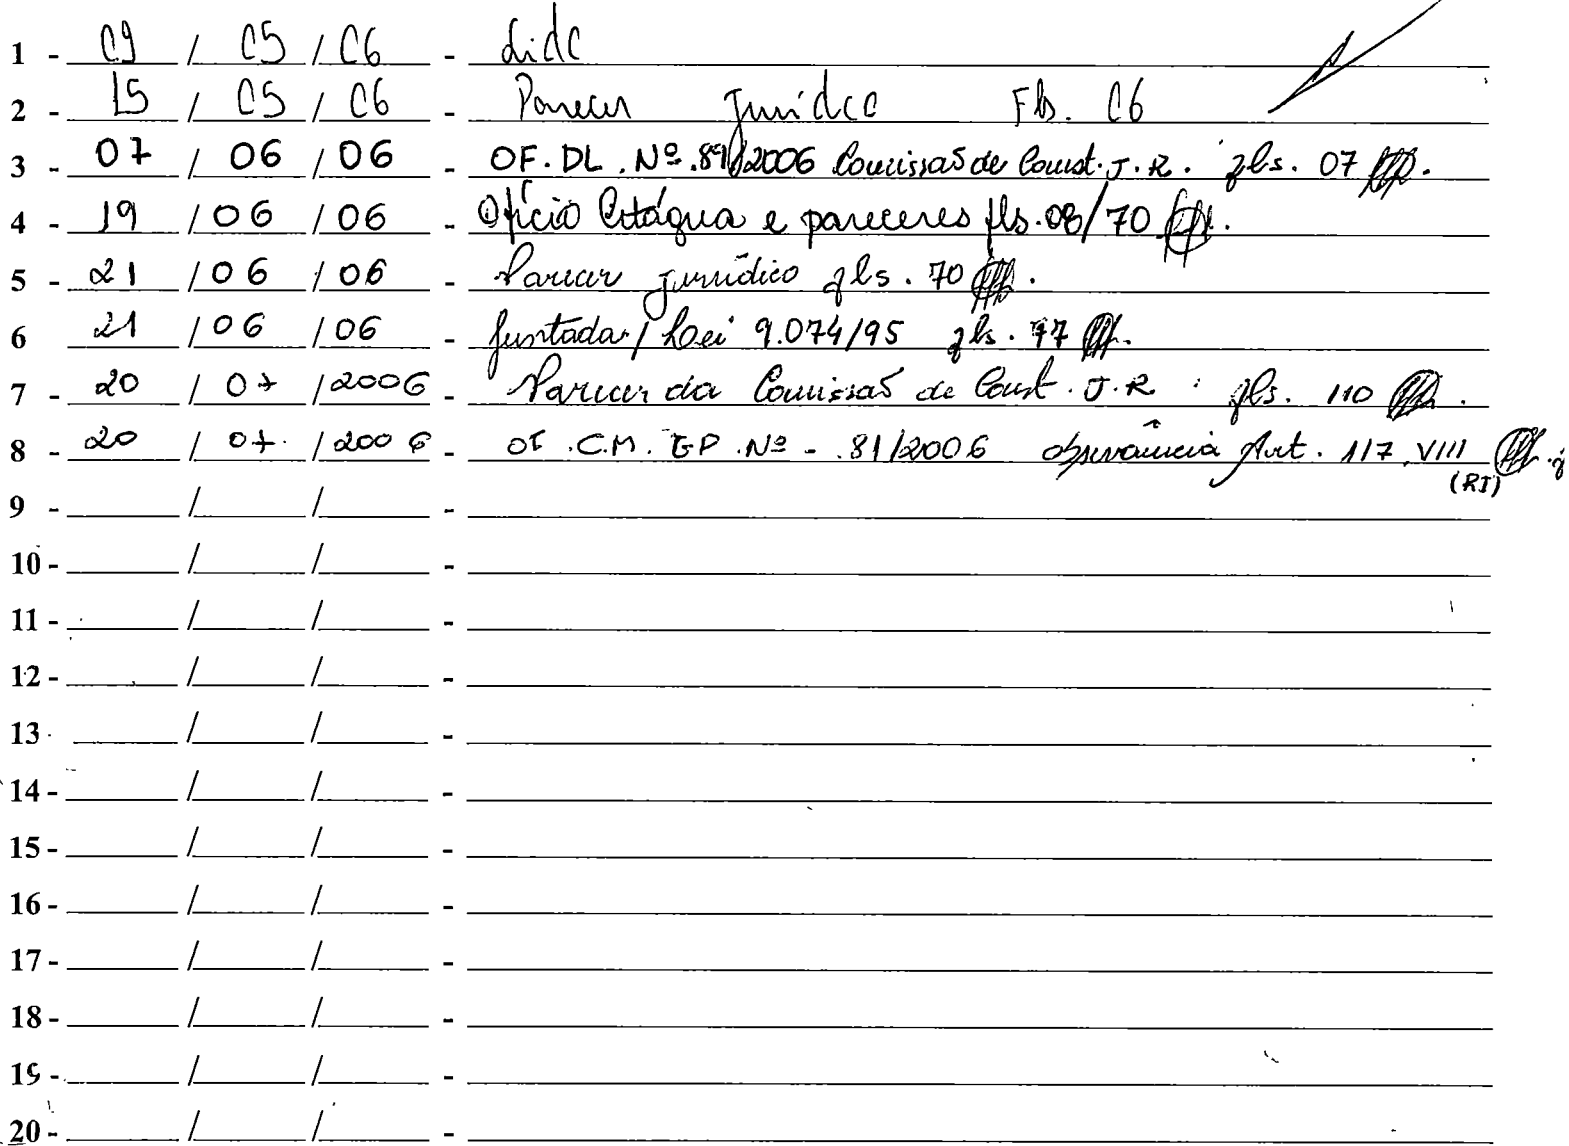 1 - 09 / 05 / 06 - Lido
2 - 15 / 05 / 06 - Parecer Juridco Fls. 06
3 - 07 / 06 / 06 OF. DL. Nº. 89/2006 Comissão de Const. J. R. fls. 07
4 - 19 / 06 / 06 - Ofício Citágua e pareceres fls. 08/70
5 - 21 / 06 / 06 - Parecer jurídico fls. 70
6 21 / 06 / 06 - Juntada / Lei 9.074/95 fls. 77
7 - 20 / 07 / 2006 - Parecer da Comissão de Const. J. R. fls. 110
8 - 20 / 07 / 2006 - OF. C.M. GP. Nº - 81/2006 observância Art. 117, VIII
(RI)
9 - / / -
10 - / / -
11 - / / -
12 - / / -
13 - / / -
14 - / / -
15 - / / -
16 - / / -
17 - / / -
18 - / / -
19 - / / -
20 - / / -